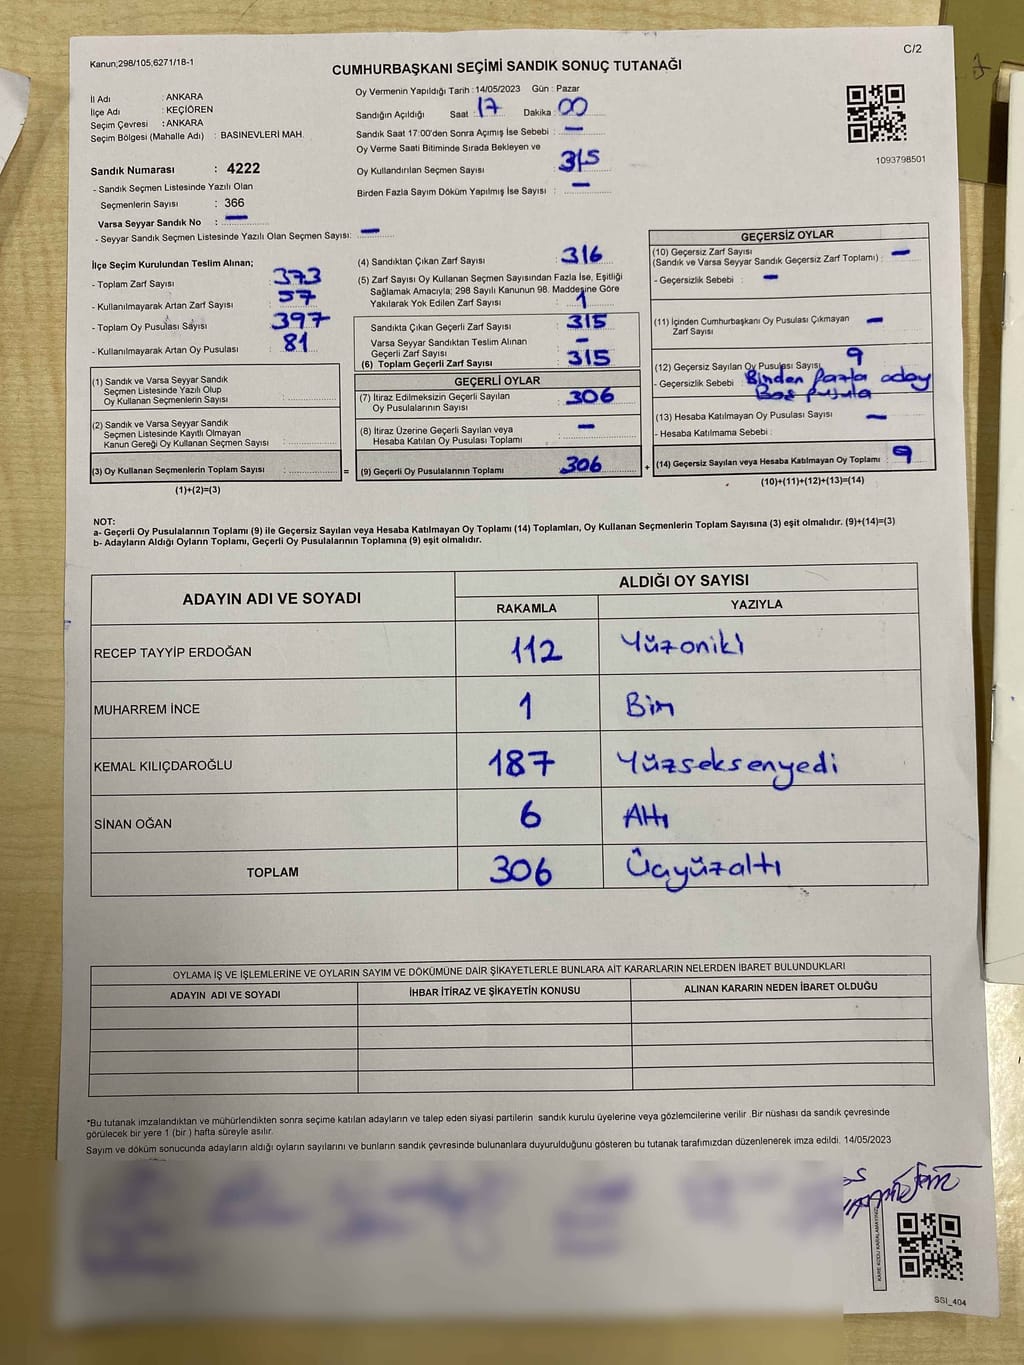 Kanun;298/105,6271/18-1
C/2
CUMHURBAŞKANI SEÇİMİ SANDIK SONUÇ TUTANAĞI
İl Adı : ANKARA
İlçe Adı : KEÇİÖREN
Seçim Çevresi : ANKARA
Seçim Bölgesi (Mahalle Adı) : BASINEVLERİ MAH.
Sandık Numarası : 4222
- Sandık Seçmen Listesinde Yazılı Olan
Seçmenlerin Sayısı : 366
Varsa Seyyar Sandık No : —
- Seyyar Sandık Seçmen Listesinde Yazılı Olan Seçmen Sayısı: —
Oy Vermenin Yapıldığı Tarih : 14/05/2023 Gün : Pazar
Sandığın Açıldığı Saat : 17 Dakika : 00
Sandık Saat 17:00'den Sonra Açımış İse Sebebi : —
Oy Verme Saati Bitiminde Sırada Bekleyen ve
Oy Kullandırılan Seçmen Sayısı : 315
Birden Fazla Sayım Döküm Yapılmış İse Sayısı : —
1093798501
İlçe Seçim Kurulundan Teslim Alınan;
- Toplam Zarf Sayısı : 373
- Kullanılmayarak Artan Zarf Sayısı : 57
- Toplam Oy Pusulası Sayısı : 397
- Kullanılmayarak Artan Oy Pusulası : 81
(1) Sandık ve Varsa Seyyar Sandık
Seçmen Listesinde Yazılı Olup
Oy Kullanan Seçmenlerin Sayısı :
(2) Sandık ve Varsa Seyyar Sandık
Seçmen Listesinde Kayıtlı Olmayan
Kanun Gereği Oy Kullanan Seçmen Sayısı :
(3) Oy Kullanan Seçmenlerin Toplam Sayısı : =
(1)+(2)=(3)
(4) Sandıktan Çıkan Zarf Sayısı : 316
(5) Zarf Sayısı Oy Kullanan Seçmen Sayısından Fazla İse, Eşitliği
Sağlamak Amacıyla; 298 Sayılı Kanunun 98. Maddesine Göre
Yakılarak Yok Edilen Zarf Sayısı : 1
Sandıkta Çıkan Geçerli Zarf Sayısı : 315
Varsa Seyyar Sandıktan Teslim Alınan
Geçerli Zarf Sayısı : —
(6) Toplam Geçerli Zarf Sayısı : 315
GEÇERLİ OYLAR
(7) İtiraz Edilmeksizin Geçerli Sayılan
Oy Pusulalarının Sayısı : 306
(8) İtiraz Üzerine Geçerli Sayılan veya
Hesaba Katılan Oy Pusulası Toplamı : —
(9) Geçerli Oy Pusulalarının Toplamı : 306 +
GEÇERSİZ OYLAR
(10) Geçersiz Zarf Sayısı
(Sandık ve Varsa Seyyar Sandık Geçersiz Zarf Toplamı) : —
- Geçersizlik Sebebi : —
(11) İçinden Cumhurbaşkanı Oy Pusulası Çıkmayan
Zarf Sayısı : —
(12) Geçersiz Sayılan Oy Pusulası Sayısı : 9
- Geçersizlik Sebebi : Birden fazla aday
Boş pusula
(13) Hesaba Katılmayan Oy Pusulası Sayısı : —
- Hesaba Katılmama Sebebi :
(14) Geçersiz Sayılan veya Hesaba Katılmayan Oy Toplamı : 9
(10)+(11)+(12)+(13)=(14)
NOT:
a- Geçerli Oy Pusulalarının Toplamı (9) ile Geçersiz Sayılan veya Hesaba Katılmayan Oy Toplamı (14) Toplamları, Oy Kullanan Seçmenlerin Toplam Sayısına (3) eşit olmalıdır. (9)+(14)=(3)
b- Adayların Aldığı Oyların Toplamı, Geçerli Oy Pusulalarının Toplamına (9) eşit olmalıdır.
ADAYIN ADI VE SOYADI
ALDIĞI OY SAYISI
RAKAMLA YAZIYLA
RECEP TAYYİP ERDOĞAN 112 Yüzoniki
MUHARREM İNCE 1 Bir
KEMAL KILIÇDAROĞLU 187 Yüzseksenyedi
SİNAN OĞAN 6 Altı
TOPLAM 306 Üçyüzaltı
OYLAMA İŞ VE İŞLEMLERİNE VE OYLARIN SAYIM VE DÖKÜMÜNE DAİR ŞİKAYETLERLE BUNLARA AİT KARARLARIN NELERDEN İBARET BULUNDUKLARI
ADAYIN ADI VE SOYADI İHBAR İTİRAZ VE ŞİKAYETİN KONUSU ALINAN KARARIN NEDEN İBARET OLDUĞU
*Bu tutanak imzalandıktan ve mühürlendikten sonra seçime katılan adayların ve talep eden siyasi partilerin sandık kurulu üyelerine veya gözlemcilerine verilir .Bir nüshası da sandık çevresinde
görülecek bir yere 1 (bir ) hafta süreyle asılır.
Sayım ve döküm sonucunda adayların aldığı oyların sayılarını ve bunların sandık çevresinde bulunanlara duyurulduğunu gösteren bu tutanak tarafımızdan düzenlenerek imza edildi. 14/05/2023
KARE KODU KARALAMAYINIZ
SSI_404